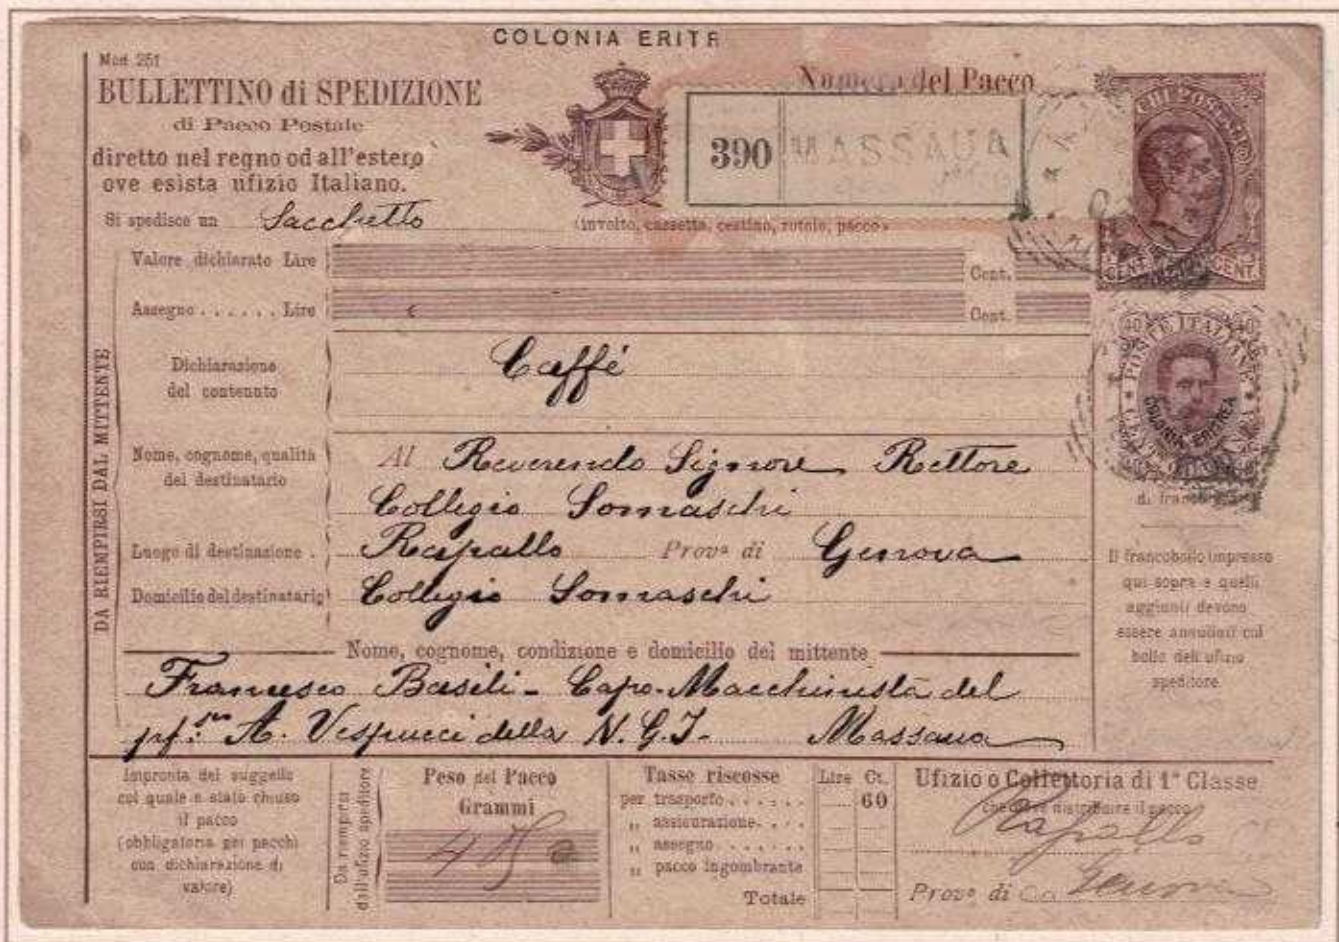 COLONIA ERITR
Mod 251
BULLETTINO di SPEDIZIONE
di Pacco Postale
diretto nel regno od all'estero
ove esista ufizio Italiano.
Si spedisce un Sacchetto
(involto, cassetta, cestino, rotolo, pacco)
Numero del Pacco
390 MASSAUA
CHI POSTALI
CENT. CENT.
Valore dichiarato Lire Cent.
Assegno . . . . . . Lire Cent.
DA RIEMPIRSI DAL MITTENTE
Dichiarazione
del contenuto
Caffé
Nome, cognome, qualità
del destinatario
Al Reverendo Signore Rettore
Collegio Somaschi
Luogo di destinazione . Rapallo Prov.ª di Genova
Domicilio del destinatario Collegio Somaschi
Nome, cognome, condizione e domicilio del mittente
Francesco Basili - Capo-Macchinista del
A. Vespucci della N. G. I. - Massaua
40 POSTE ITALIANE 40
COLONIA ERITREA
di
Il francobollo impresso
qui sopra e quelli
aggiunti devono
essere annullati col
bollo dell'ufizio
speditore.
Impronta del suggello
col quale è stato chiuso
il pacco
(obbligatoria pei pacchi
con dichiarazione di
valore)
Da riempirsi
dall'ufizio speditore
Peso del Pacco
Grammi
Tasse riscosse Lire Ct.
per trasporto . . . . . . 60
„ assicurazione . . . .
„ assegno . . . . . .
„ pacco ingombrante
Totale
Ufizio o Collettoria di 1ª Classe
che deve distribuire il pacco
Rapallo
Prov.ª di Genova